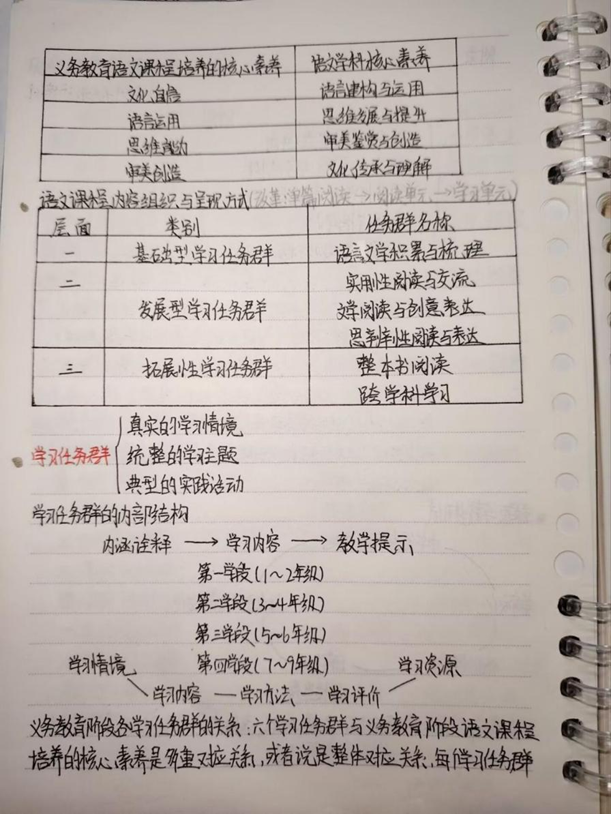 义务教育语文课程培养的核心素养 语文学科核心素养
文化自信 语言建构与运用
语言运用 思维发展与提升
思维能力 审美鉴赏与创造
审美创造 文化传承与理解
语文课程内容组织与呈现方式(改革:单篇阅读→阅读单元→学习单元)
层面 类别 任务群名称
一 基础型学习任务群 语言文字积累与梳理
二 实用性阅读与交流
发展型学习任务群 文学阅读与创意表达
思辨性阅读与表达
三 拓展性学习任务群 整本书阅读
跨学科学习
真实的学习情境
学习任务群 统整的学习主题
典型的实践活动
学习任务群的内部结构
内涵诠释 → 学习内容 → 教学提示
第一学段(1~2年级)
第二学段(3~4年级)
第三学段(5~6年级)
学习情境 第四学段(7~9年级) 学习资源
学习内容 — 学习方法 — 学习评价
义务教育阶段各学习任务群的关系:六个学习任务群与义务教育阶段语文课程
培养的核心素养是多重对应关系,或者说是整体对应关系,每个学习任务群